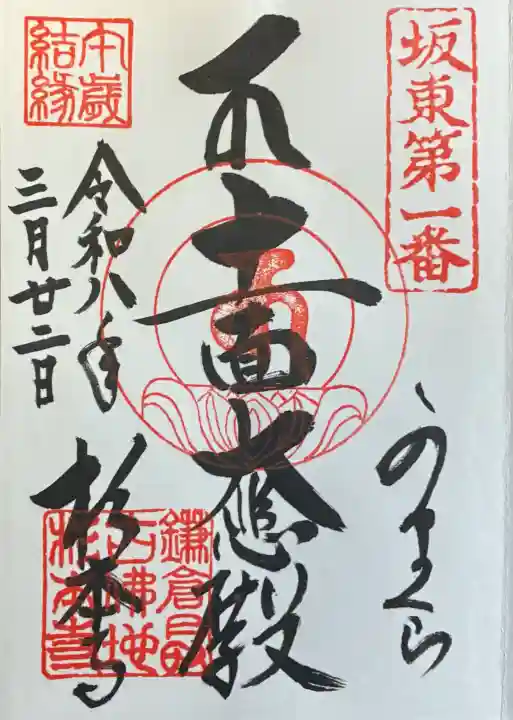 坂東第一番
かまくら
十一面大悲殿
午歳
結縁
令和八年
三月廿二日
杉本寺
鎌倉最
古佛地
杉本寺